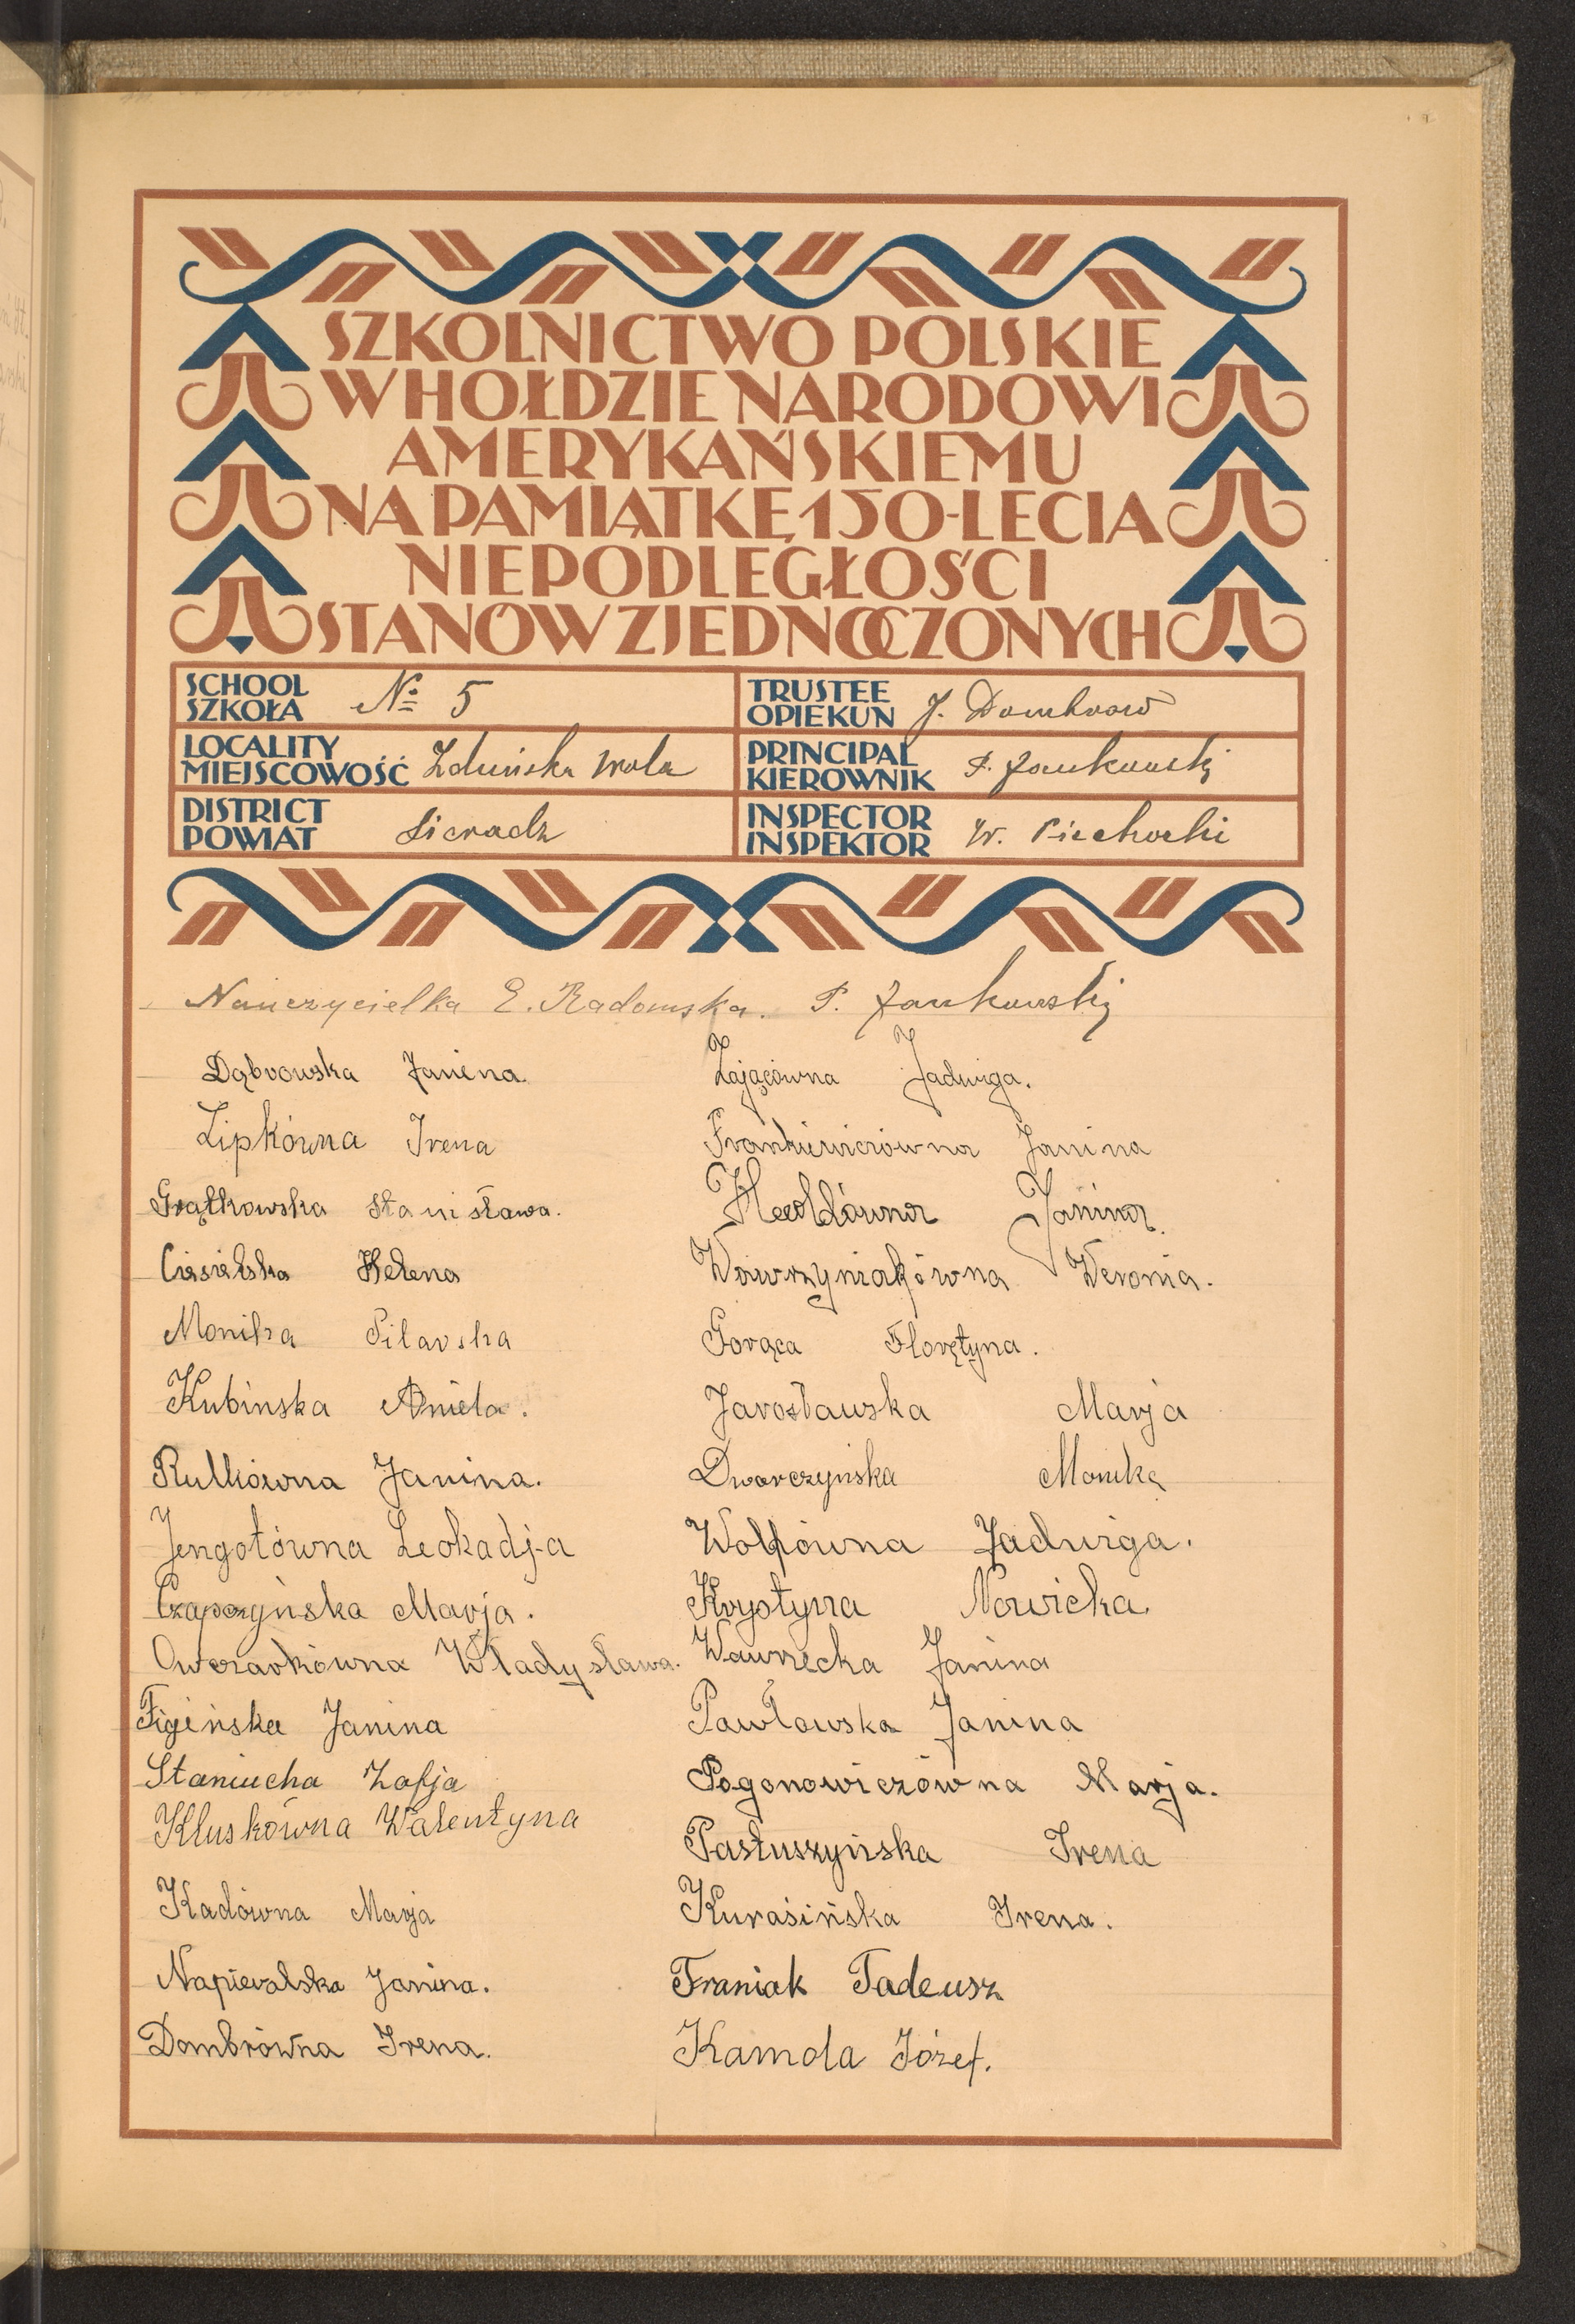 SZKOLNICTWO POLSKIE
W HOŁDZIE NARODOWI
AMERYKAŃSKIEMU
NA PAMIĄTKĘ 150-LECIA
NIEPODLEGŁOŚCI
STANÓW ZJEDNOCZONYCH
SCHOOL
SZKOŁA № 5
TRUSTEE
OPIEKUN J.
LOCALITY
MIEJSCOWOŚĆ Zduńska Wola
PRINCIPAL
KIEROWNIK P. Jankowski
DISTRICT
POWIAT Sieradz
INSPECTOR
INSPEKTOR W. Piechocki
Nauczycielka E. Radomska. P. Jankowski
Dąbrowska Janina.
Lipkówna Irena
Grątkowska Stanisława.
Ciesielska Helena
Monika Pilarska
Kubinska Aniela.
Rulkówna Janina.
Jengotówna Leokadj-a
Czapczyńska Marja.
Owczarkówna Władysława.
Figińska Janina
Staniucha Zofja
Kluskówna Walentyna
Kadówna Marja
Napieralska Janina.
Dombrówna Irena.
Zającówna Jadwiga.
Frankiewiczówna Janina
Janina.
Wawrzyniakówna Weronia.
Gorąca Florętyna.
Jarosławska Marja
Dworczyńska Monika
Wolfówna Jadwiga.
Krystyna Nowicka.
Wawrzecka Janina
Pawłowska Janina
Pogonowiczówna Marja.
Pastuszyńska Irena
Kurasińska Irena.
Franiak Tadeusz
Kamola Józef.